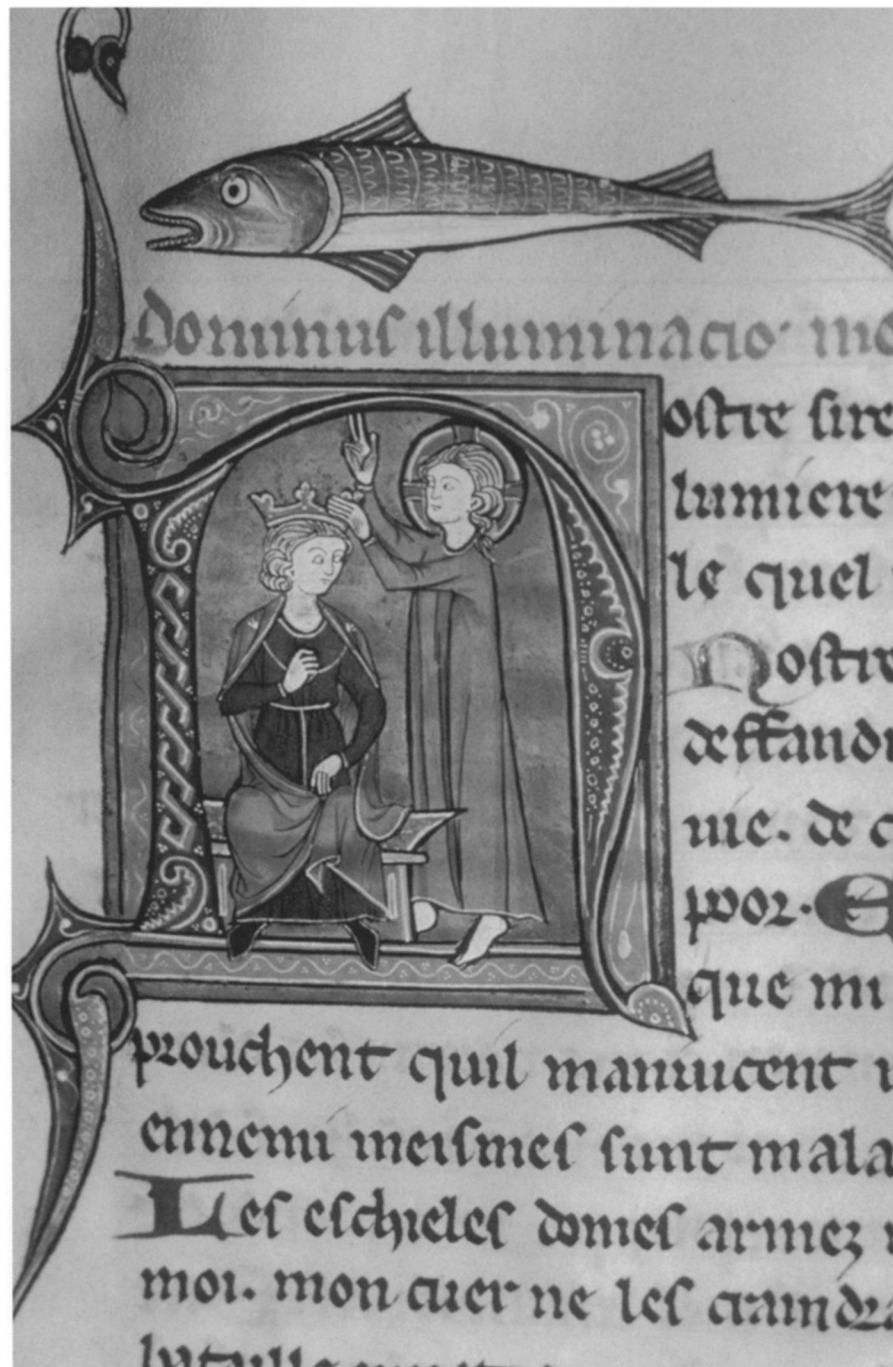 dominus illuminacio. me
Nostre sire
lumiere
le quel
Nostre
deffandr
uie. de c
poor. E
que mi
prouchent quil maniucent
ennemi meismes sunt mala
Les eschieles domes armez
moi. mon cuer ne les craindra
bataille